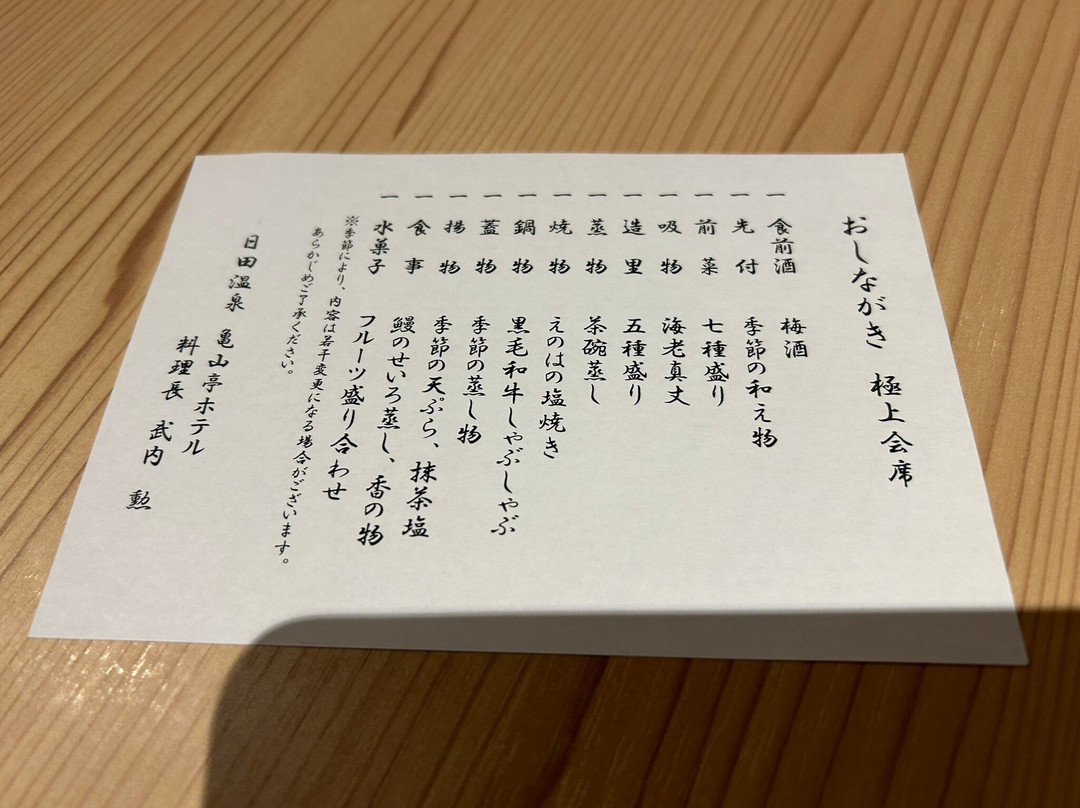 おしながき 極上会席
一 食前酒 梅酒
一 先付 季節の和え物
一 前菜 七種盛り
一 吸物 海老真丈
一 造里 五種盛り
一 蒸物 茶碗蒸し
一 焼物 えのはの塩焼き
一 鍋物 黒毛和牛しゃぶしゃぶ
一 蓋物 季節の蒸し物
一 揚物 季節の天ぷら、抹茶塩
一 食事 鰻のせいろ蒸し、香の物
一 水菓子 フルーツ盛り合わせ
※季節により、内容は若干変更になる場合がございます。
あらかじめご了承ください。
日田温泉 亀山亭ホテル
料理長 武内 勲